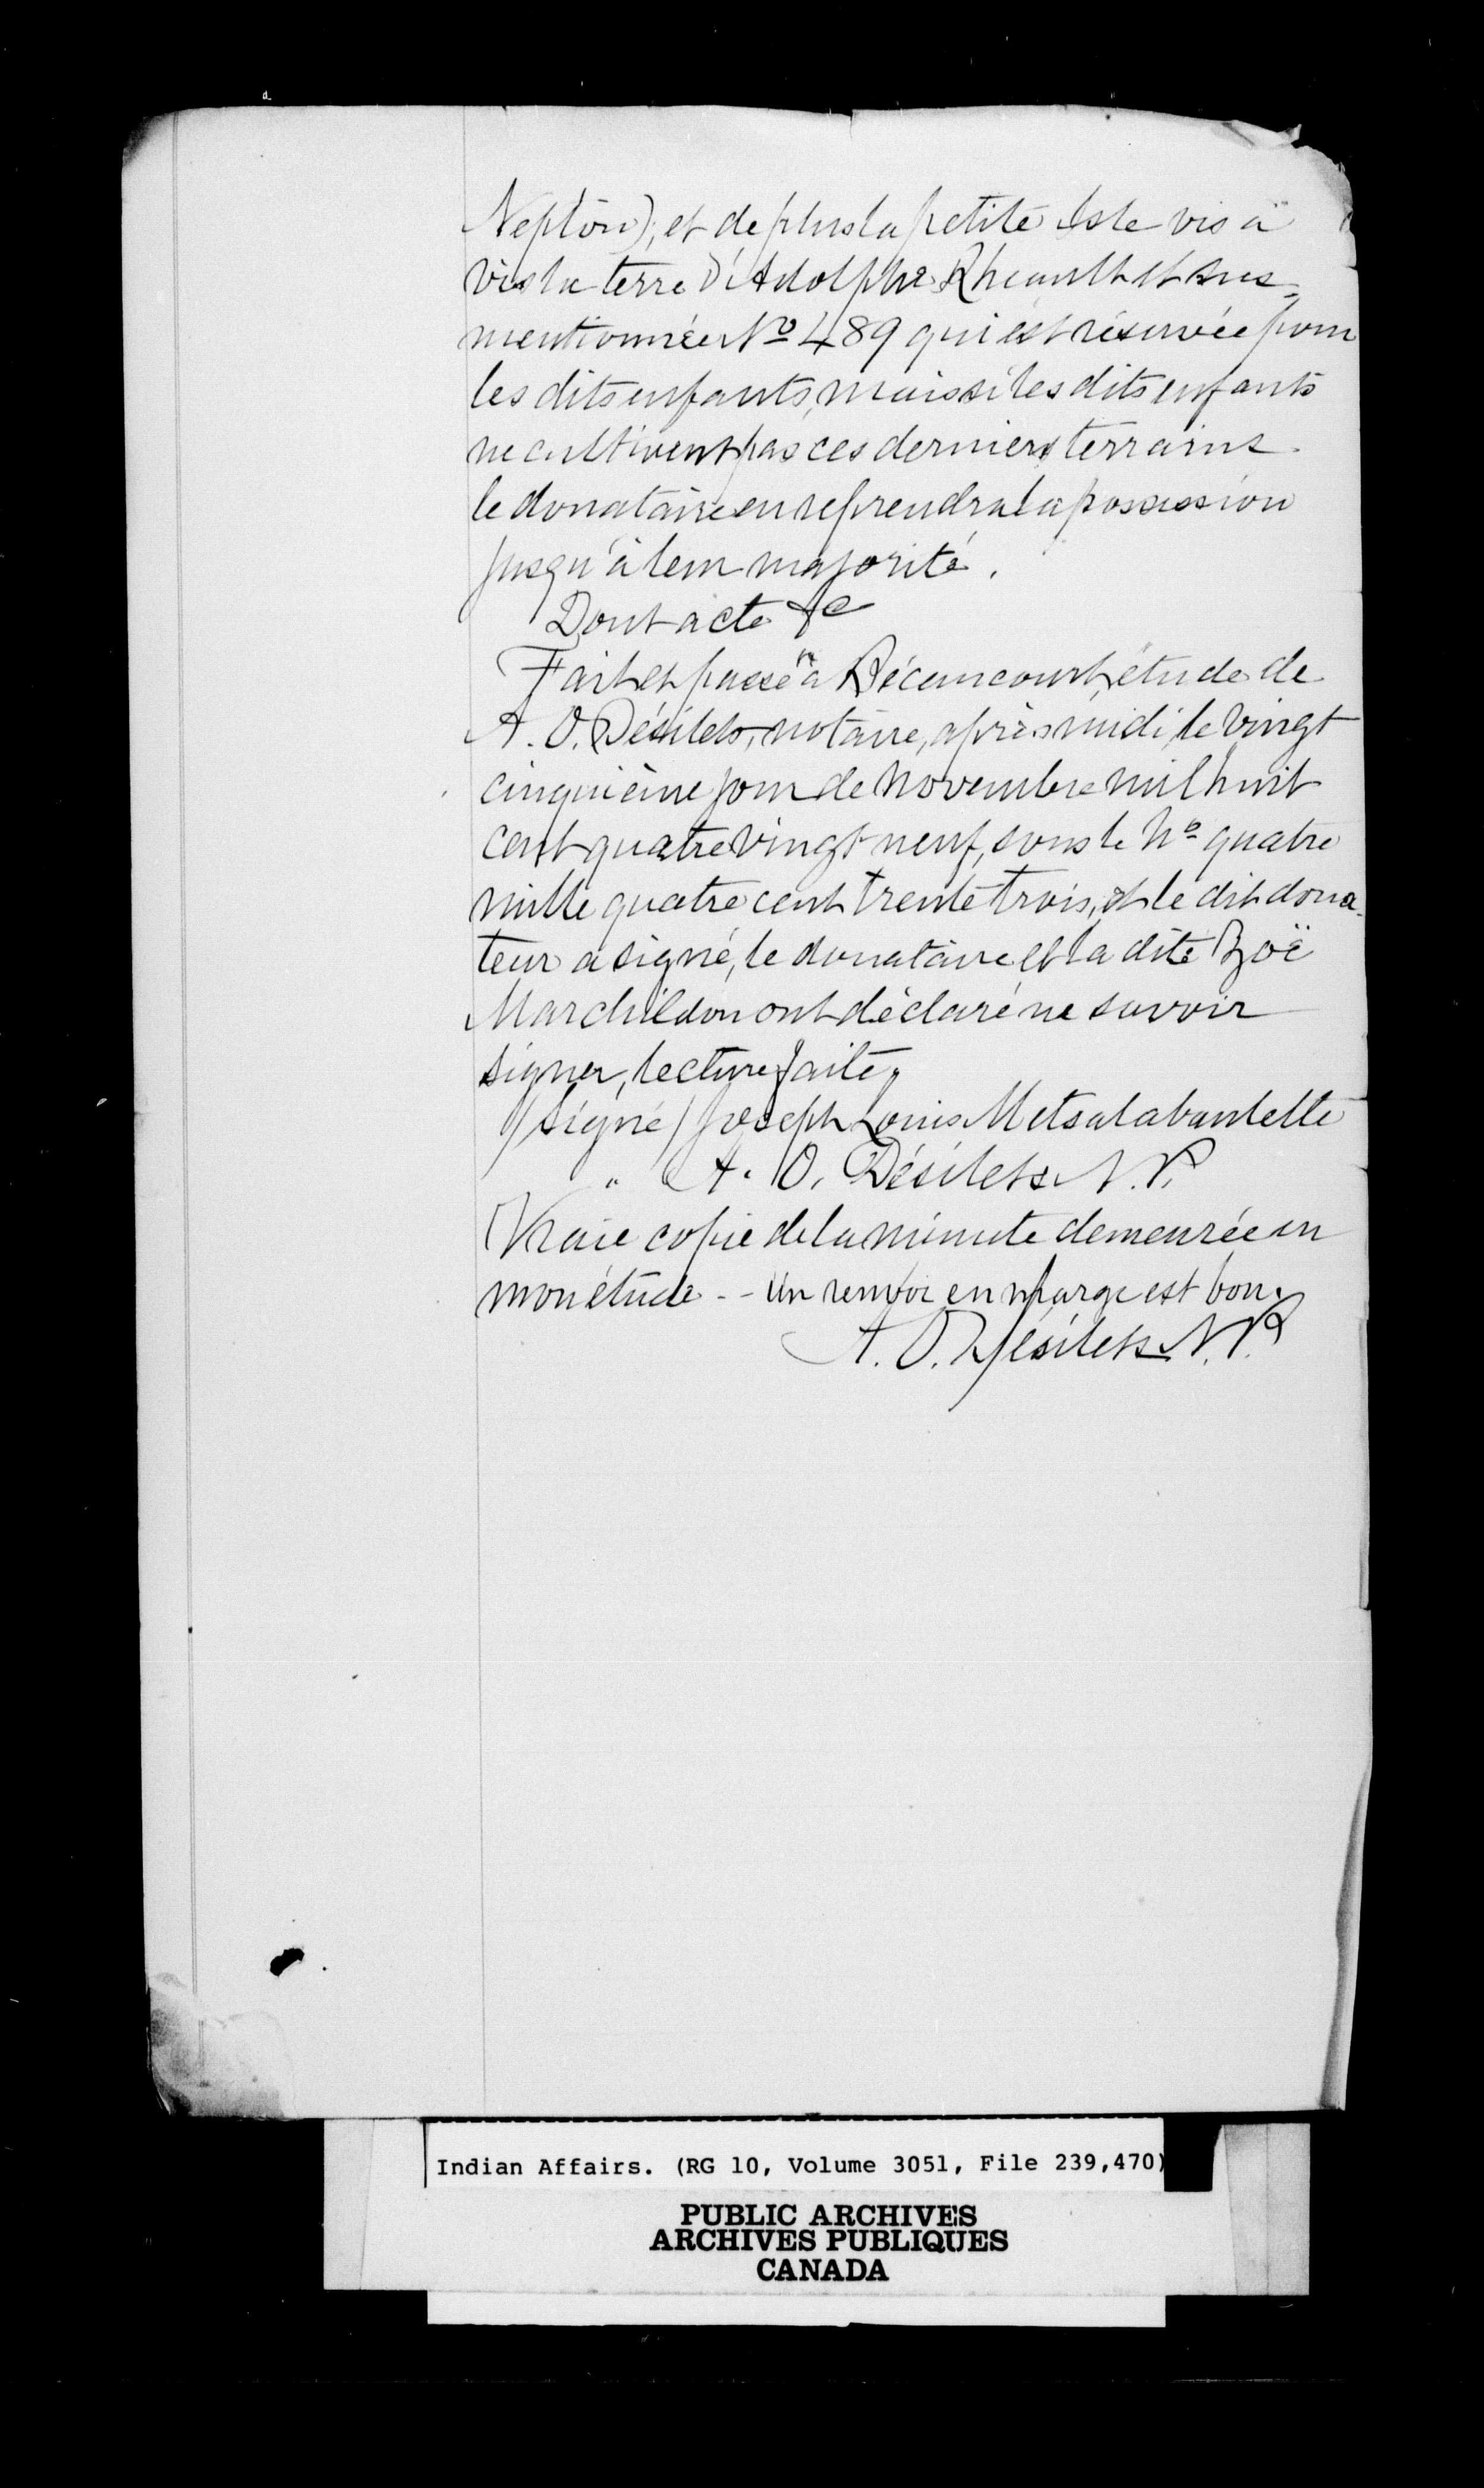 Neptôn), et de plus la petite Isle vis à
vis la terre d'Adolphe Rheault et sus-
mentionnée No 489 qui est réservée pour
les dits enfants, mais si les dits enfants
ne cultivent pas ces derniers terrains
le donataire en reprendra la possession
jusqu'à leur majorité.
Dont acte &c
Fait et passé à Bécancourt, étude de
A. O. Désilets, notaire, après midi, le vingt
cinquième jour de novembre mil huit
cent quatre vingt neuf, sous le No quatre
mille quatre cent trente trois, et le dit dona-
teur a signé, le donataire et la dite Zoë
Marchildon ont déclaré ne savoir
signer, lecture faite,
(signé) Joseph Louis Metsalabanlette
" A. O. Désilets N.P.
Vraie copie de la minute demeurée en
mon étude -- Un renvoi en marge est bon.
A. O. Désilets N.P.
Indian Affairs. (RG 10, Volume 3051, File 239,470)
PUBLIC ARCHIVES
ARCHIVES PUBLIQUES
CANADA